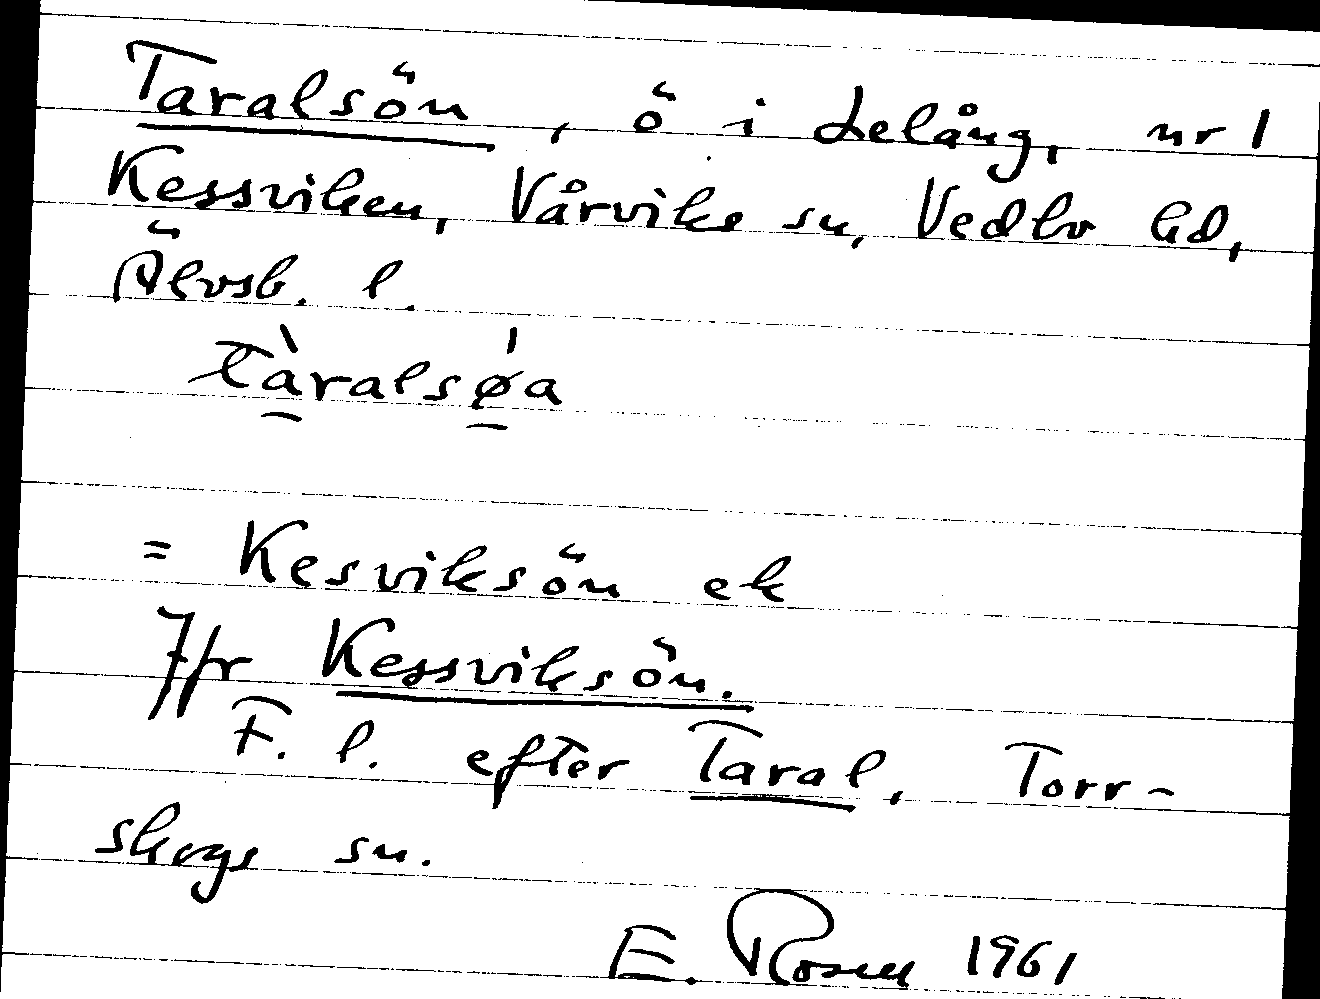 Taralsön, ö i Lelång, nr 1
Kessviken, Vårviks sn, Vedbo hd,
Älvsb. l.
tàralsǿa
= Kesviksön ek
Jfr Kessviksön.
F. l. efter Taral, Torr-
skogs sn.
E. Rosen 1961